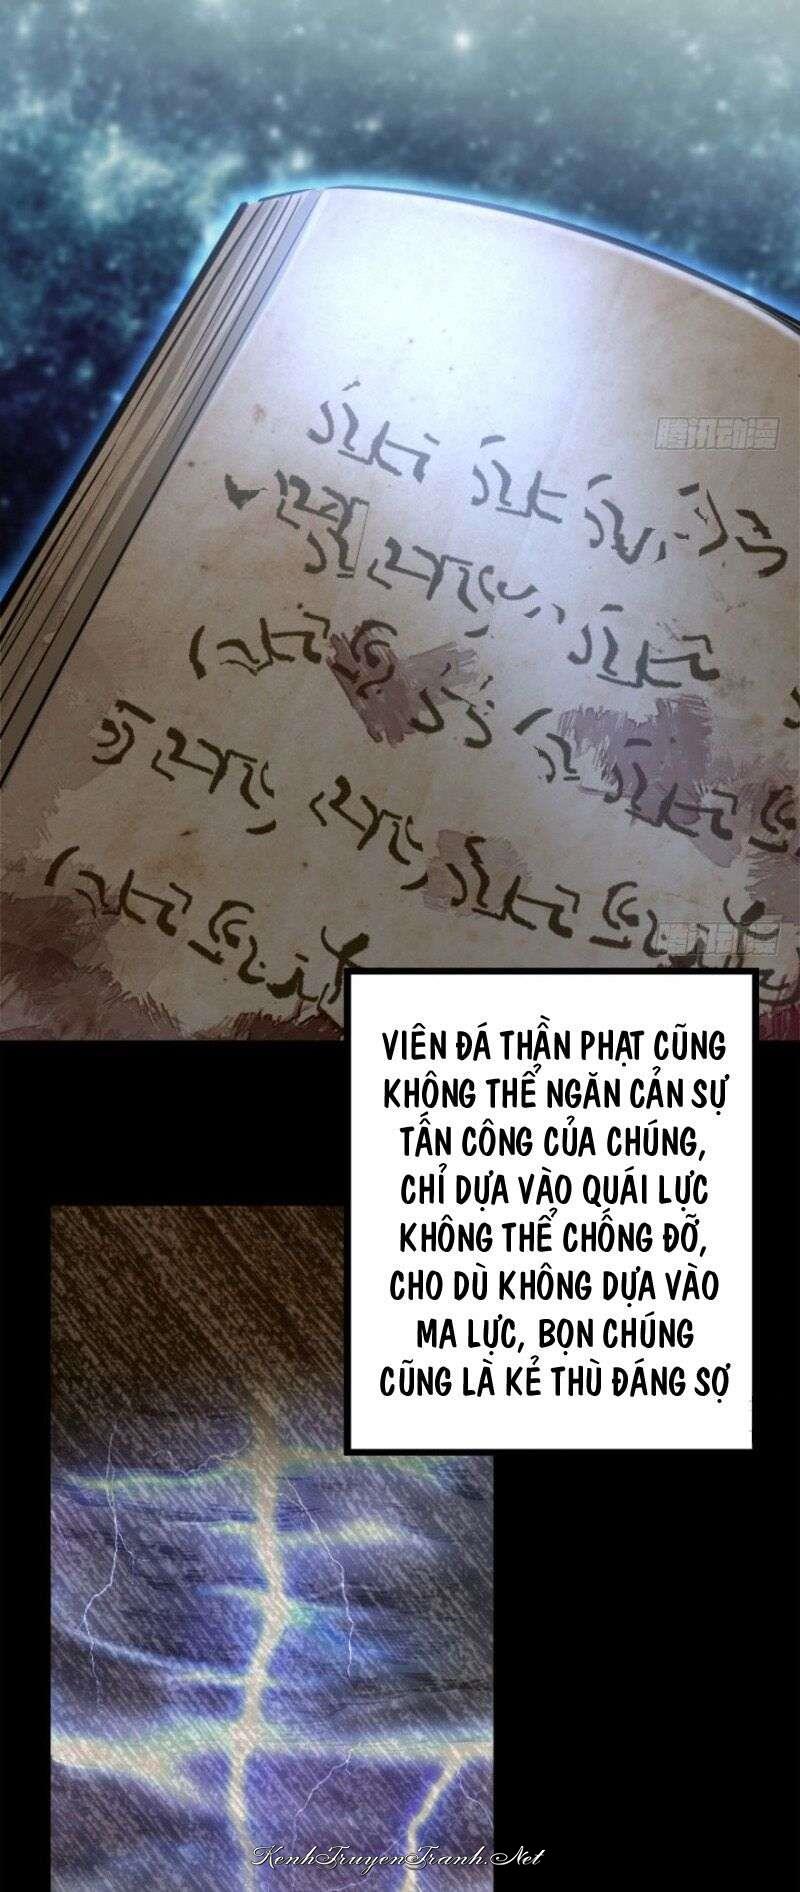 腾讯动漫
腾讯动漫
VIÊN ĐÁ THẦN PHẠT CŨNG
KHÔNG THỂ NGĂN CẢN SỰ
TẤN CÔNG CỦA CHÚNG,
CHỈ DỰA VÀO QUÁI LỰC
KHÔNG THỂ CHỐNG ĐỠ,
CHO DÙ KHÔNG DỰA VÀO
MA LỰC, BỌN CHÚNG
CŨNG LÀ KẺ THÙ ĐÁNG SỢ
KenhTruyenTranh.Net